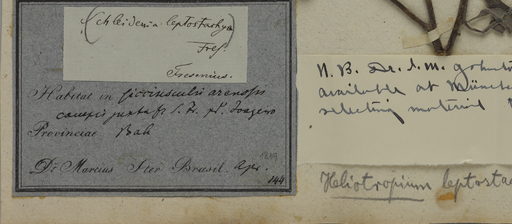 (Schleidenia leptostachya
Fres.
Fresenius.
Habitat in
campis juxta fl. S. Fr. pr. Joazeiro
Provinciae Bah
Dr Martius Iter Brasil. Apr.
1819
144
N. B. Dr. I. M. Johnst
available at Münche
selecting material
Heliotropium leptostac